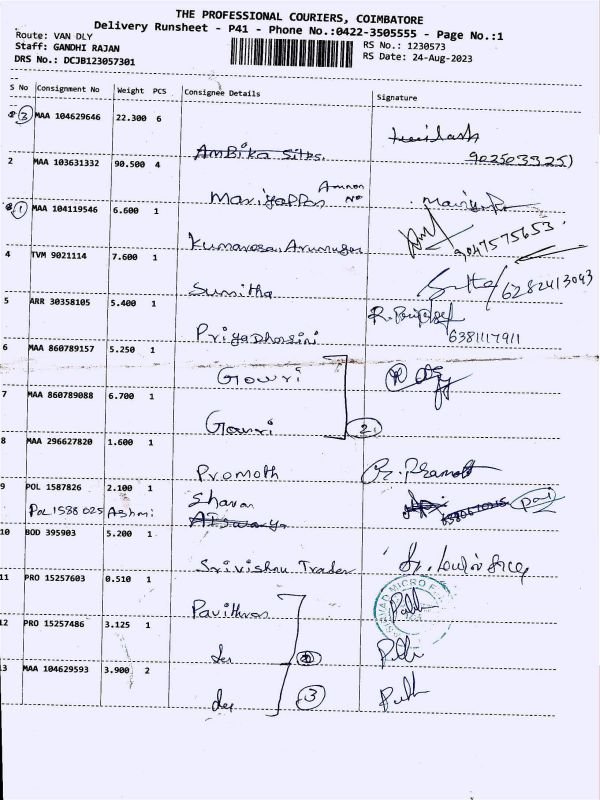 THE PROFESSIONAL COURIERS, COIMBATORE
Delivery Runsheet - P41 - Phone No.:0422-3505555 - Page No.:1
Route: VAN DLY
Staff: GANDHI RAJAN
DRS No.: DCJB123057301
RS No.: 1230573
RS Date: 24-Aug-2023
S No Consignment No Weight PCS Consignee Details Signature
3 MAA 104629646 22.300 6
Ambika Silks.
2 MAA 103631332 90.500 4
Mariyappan
1 MAA 104119546 6.600 1
Kumaresa Arumugam 9047575653
4 TVM 9021114 7.600 1
Sunitha 6282413093
5 ARR 30358105 5.400 1
Priyadharsini 6381117911
6 MAA 860789157 5.250 1
Gowri
7 MAA 860789088 6.700 1
Gowri 2
8 MAA 296627820 1.600 1
Promoth
9 POL 1587826 2.100 1 Sharan
POL 1588025 Ashmi Aiswarya
10 BOD 395903 5.200 1
Srivishnu Trader
11 PRO 15257603 0.510 1
Pavithran
12 PRO 15257486 3.125 1
3 MAA 104629593 3.900 2
3